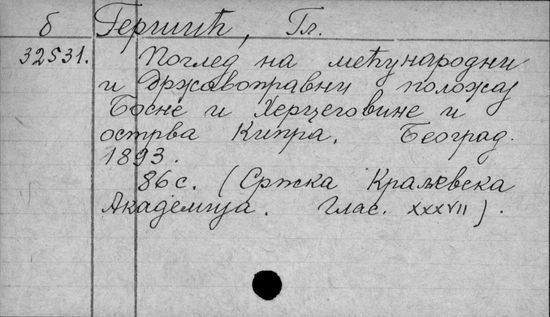 б Гершић, Гл.
32531. Поглед на међународни
и државоправни положај
Босне и Херцеговине и
острва Кипра. Београд.
1893.
86 с. (Српска Краљевска
Академија. Глас. XXXVII).